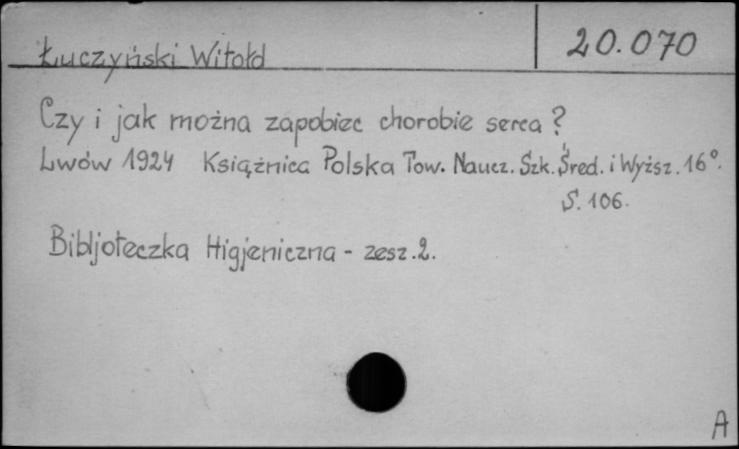 Łuczyński Witołd
20.070
Czy i jak można zapobiec chorobie serca?
Lwów 1924 Książnica Polska Tow. Naucz. Szk. Śred. i Wyższ. 16°.
S. 106.
Bibljoteczka Higjeniczna - zesz. 2.
A